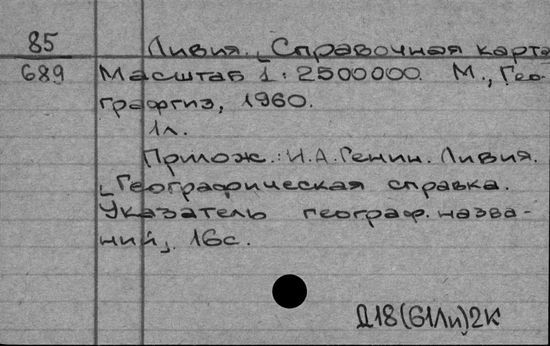 85 Ливия. „Справочная карта
689 Масштаб 1:2500000. М., Гео-
графгиз, 1960.
1л.
Прилож.: И.А.Генин. Ливия.
„Географическая справка.
Указатель географ. назва-
ний„. 16с.
Д18(61Ли)2К